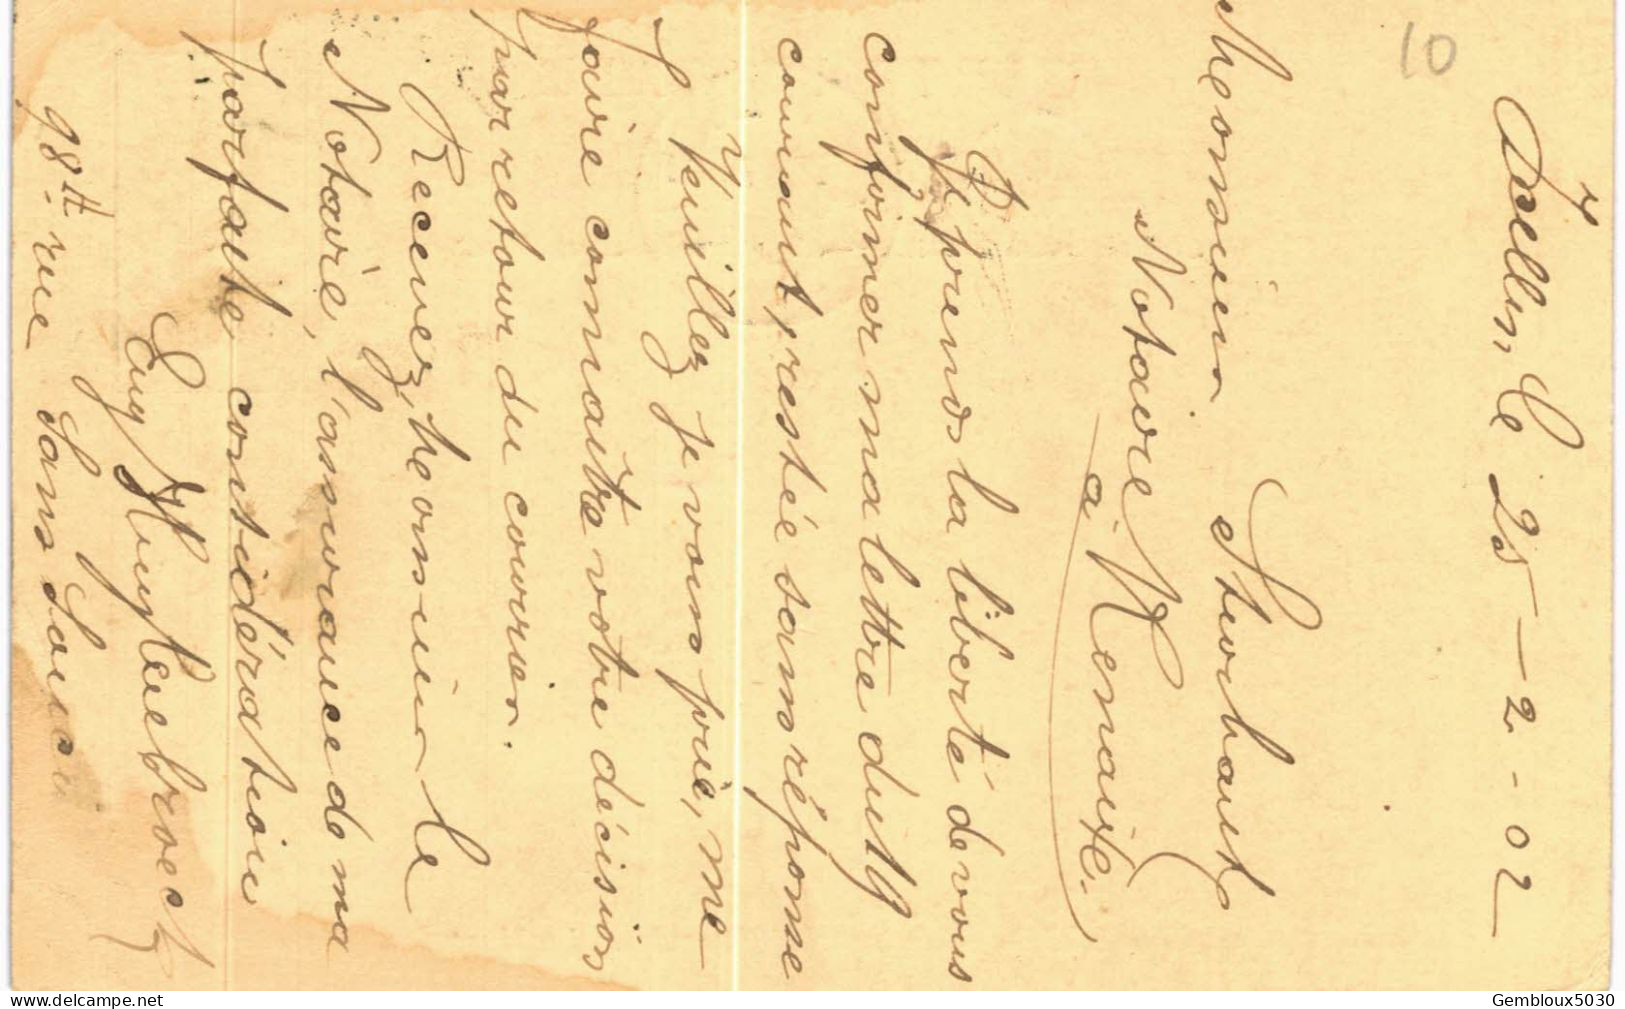 Ixelles, le 25-2-02
Monsieur Sturbaut
Notaire
à Renaix.
Je prends la liberté de vous
confirmer ma lettre du 19
courant, restée sans réponse
Veuillez je vous prie, me
faire connaître votre décision
par retour du courrier.
Recevez, Monsieur le
Notaire, l'assurance de ma
parfaite considération
Eug Huylebroeck
98 rue Sans Souci
10
Gembloux5030
www.delcampe.net